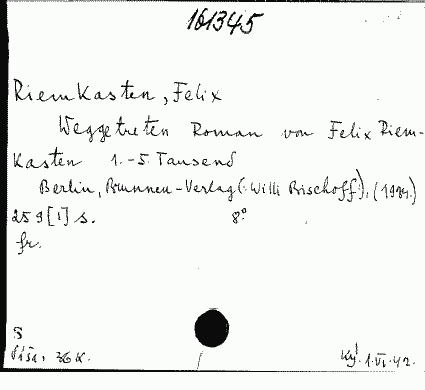 161345
Riemkasten, Felix
Weggetreten Roman von Felix Riem-
kasten 1.-5. Tausend
Berlin, Brunnen-Verlag (: Willi Bischoff), (1934.)
259 [1] s. 8°
fr.
S
Píša, 36 K. Kyj 1.VI.42.